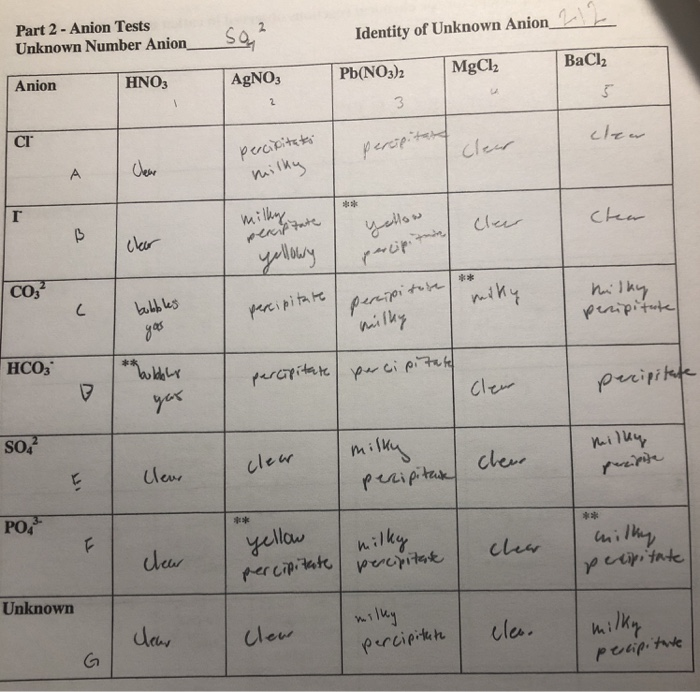 Part 2 - Anion Tests
Unknown Number Anion SO4 2
Identity of Unknown Anion 212
Anion HNO3 AgNO3 Pb(NO3)2 MgCl2 BaCl2
1 2 3 4 5
Cl-
A
Clear
percipitate
milky
percipitate
Clear
clear
I-
B
Clear
milky
percipitate
yellowy
**
yellow
percipitate
Clear
Clear
CO3 2
C
bubbles
gas
percipitate
percipitate
milky
**
milky
milky
percipitate
HCO3-
D
**
bubbles
gas
percipitate
percipitate
Clear
percipitate
SO4 2
E
Clear
Clear
milky
percipitate
Clear
milky
PO4 3-
F
Clear
**
yellow
percipitate
milky
percipitate
Clear
**
milky
percipitate
Unknown
G
Clear
Clear
milky
percipitate
Clear
milky
percipitate